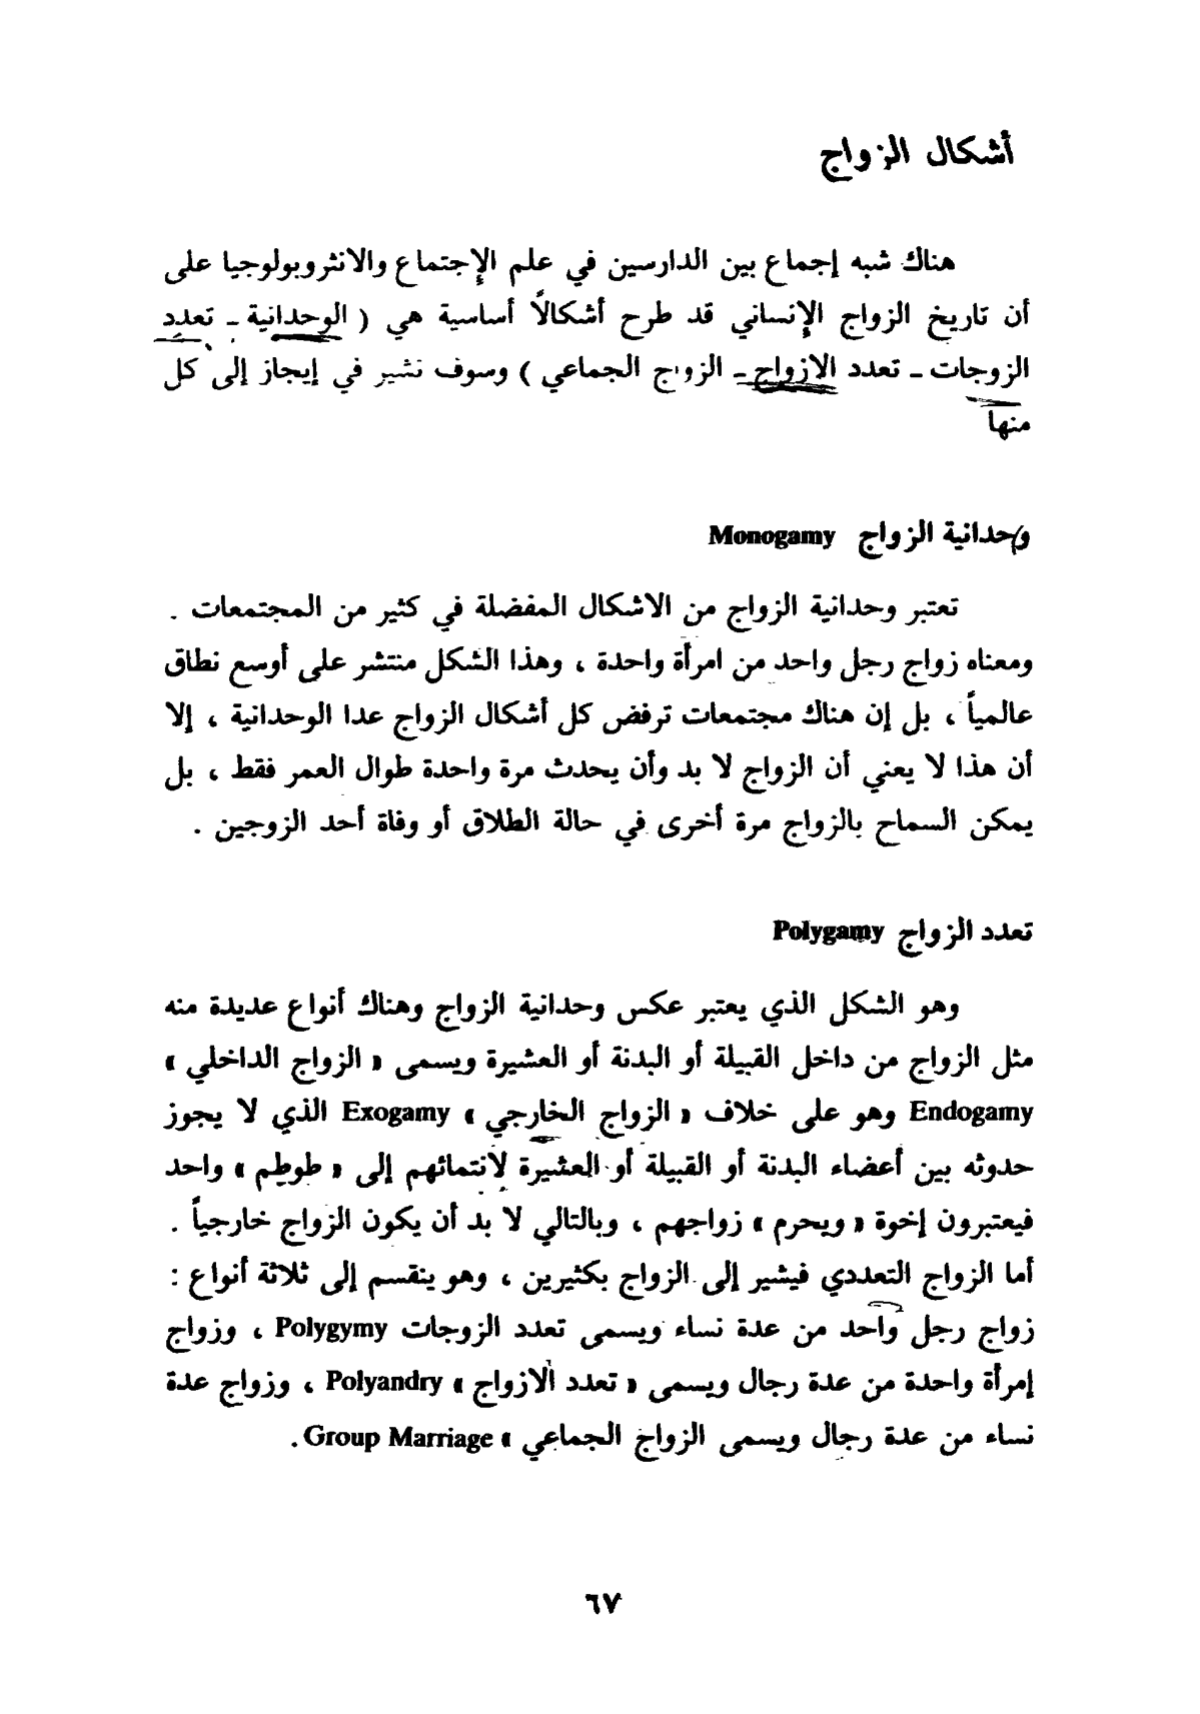 أشكال الزواج
هناك شبه إجماع بين الدارسين في علم الإجتماع والانثروبولوجيا على
أن تاريخ الزواج الإنساني قد طرح أشكالاً أساسية هي ( الوحدانية ـ تعدد
الزوجات ـ تعدد الازواج ـ الزواج الجماعي ) وسوف نشير في إيجاز إلى كل
منها
وحدانية الزواج Monogamy
تعتبر وحدانية الزواج من الاشكال المفضلة في كثير من المجتمعات .
ومعناه زواج رجل واحد من امرأة واحدة ، وهذا الشكل منتشر على أوسع نطاق
عالمياً ، بل إن هناك مجتمعات ترفض كل أشكال الزواج عدا الوحدانية ، إلا
أن هذا لا يعني أن الزواج لا بد وأن يحدث مرة واحدة طوال العمر فقط ، بل
يمكن السماح بالزواج مرة أخرى في حالة الطلاق أو وفاة أحد الزوجين .
تعدد الزواج Polygamy
وهو الشكل الذي يعتبر عكس وحدانية الزواج وهناك أنواع عديدة منه
مثل الزواج من داخل القبيلة أو البدنة أو العشيرة ويسمى « الزواج الداخلي »
Endogamy وهو على خلاف « الزواج الخارجي » Exogamy الذي لا يجوز
حدوثه بين أعضاء البدنة أو القبيلة أو العشيرة لانتمائهم إلى « طوطم » واحد
فيعتبرون إخوة « ويحرم » زواجهم ، وبالتالي لا بد أن يكون الزواج خارجياً .
أما الزواج التعددي فيشير إلى الزواج بكثيرين ، وهو ينقسم إلى ثلاثة أنواع :
زواج رجل واحد من عدة نساء ويسمى تعدد الزوجات Polygymy ، وزواج
إمرأة واحدة من عدة رجال ويسمى « تعدد الازواج » Polyandry ، وزواج عدة
نساء من عدة رجال ويسمى الزواج الجماعي » Group Marriage .
٦٧